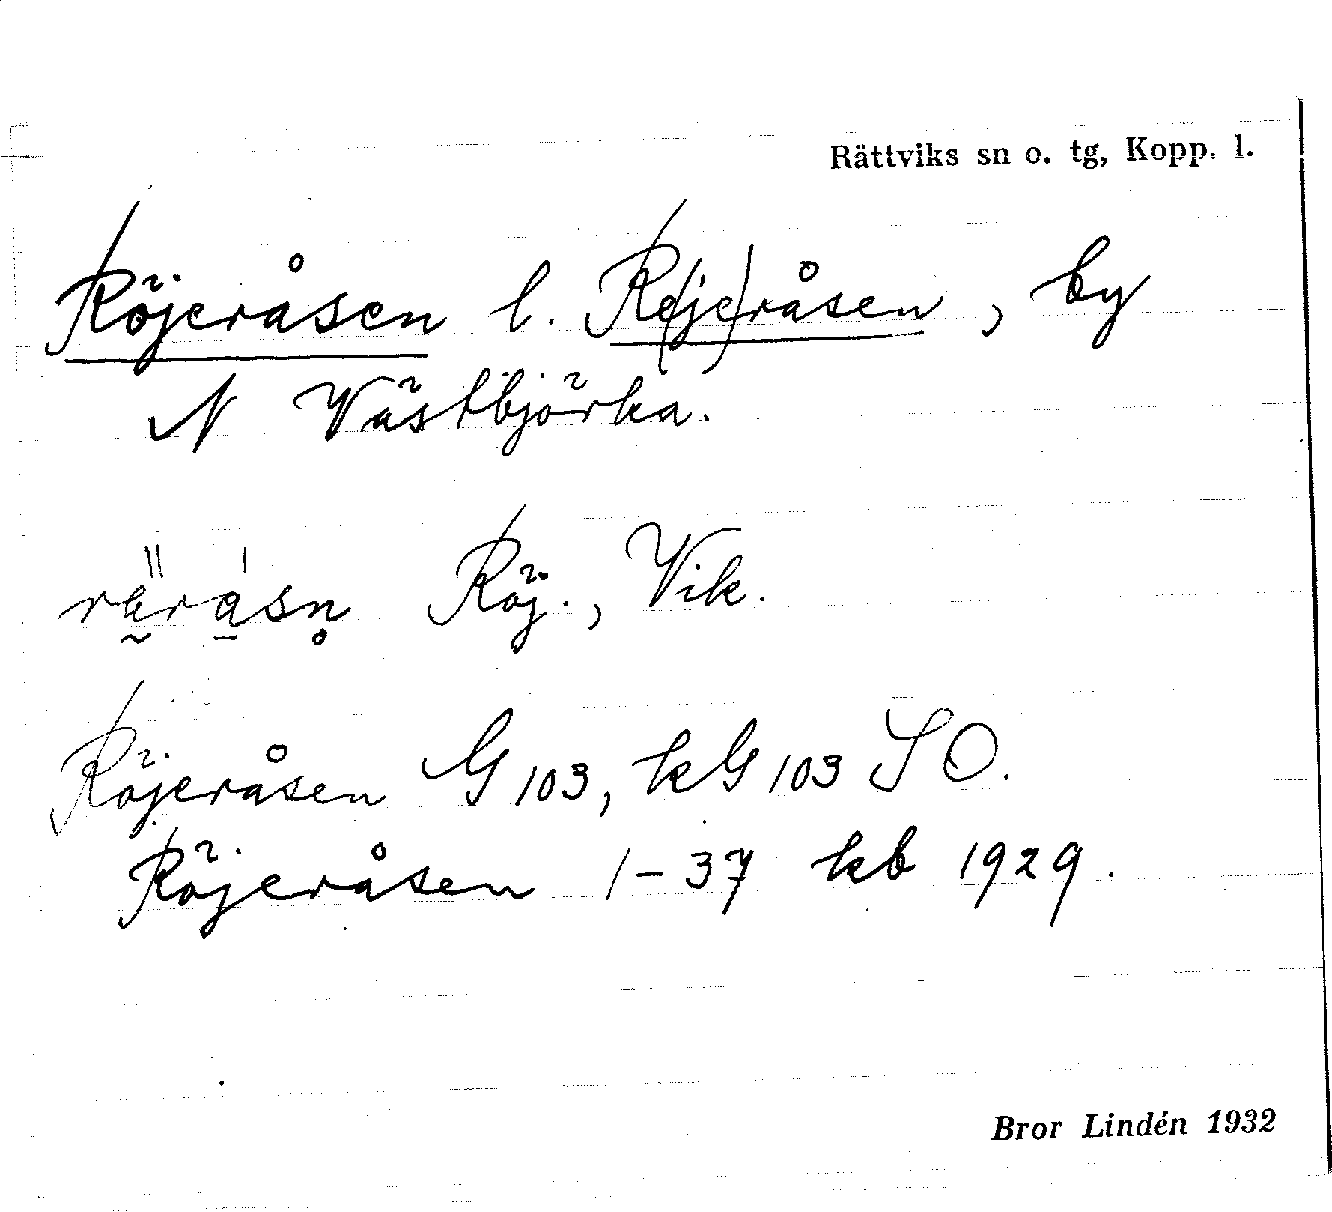 Rättviks sn o. tg, Kopp. l.
Röjeråsen l. Re(je)råsen, by
N Västbjörka.
Röj., Vik.
Röjeråsen G 103, kG 103 SO.
Röjeråsen 1-37 kb 1929.
Bror Lindén 1932